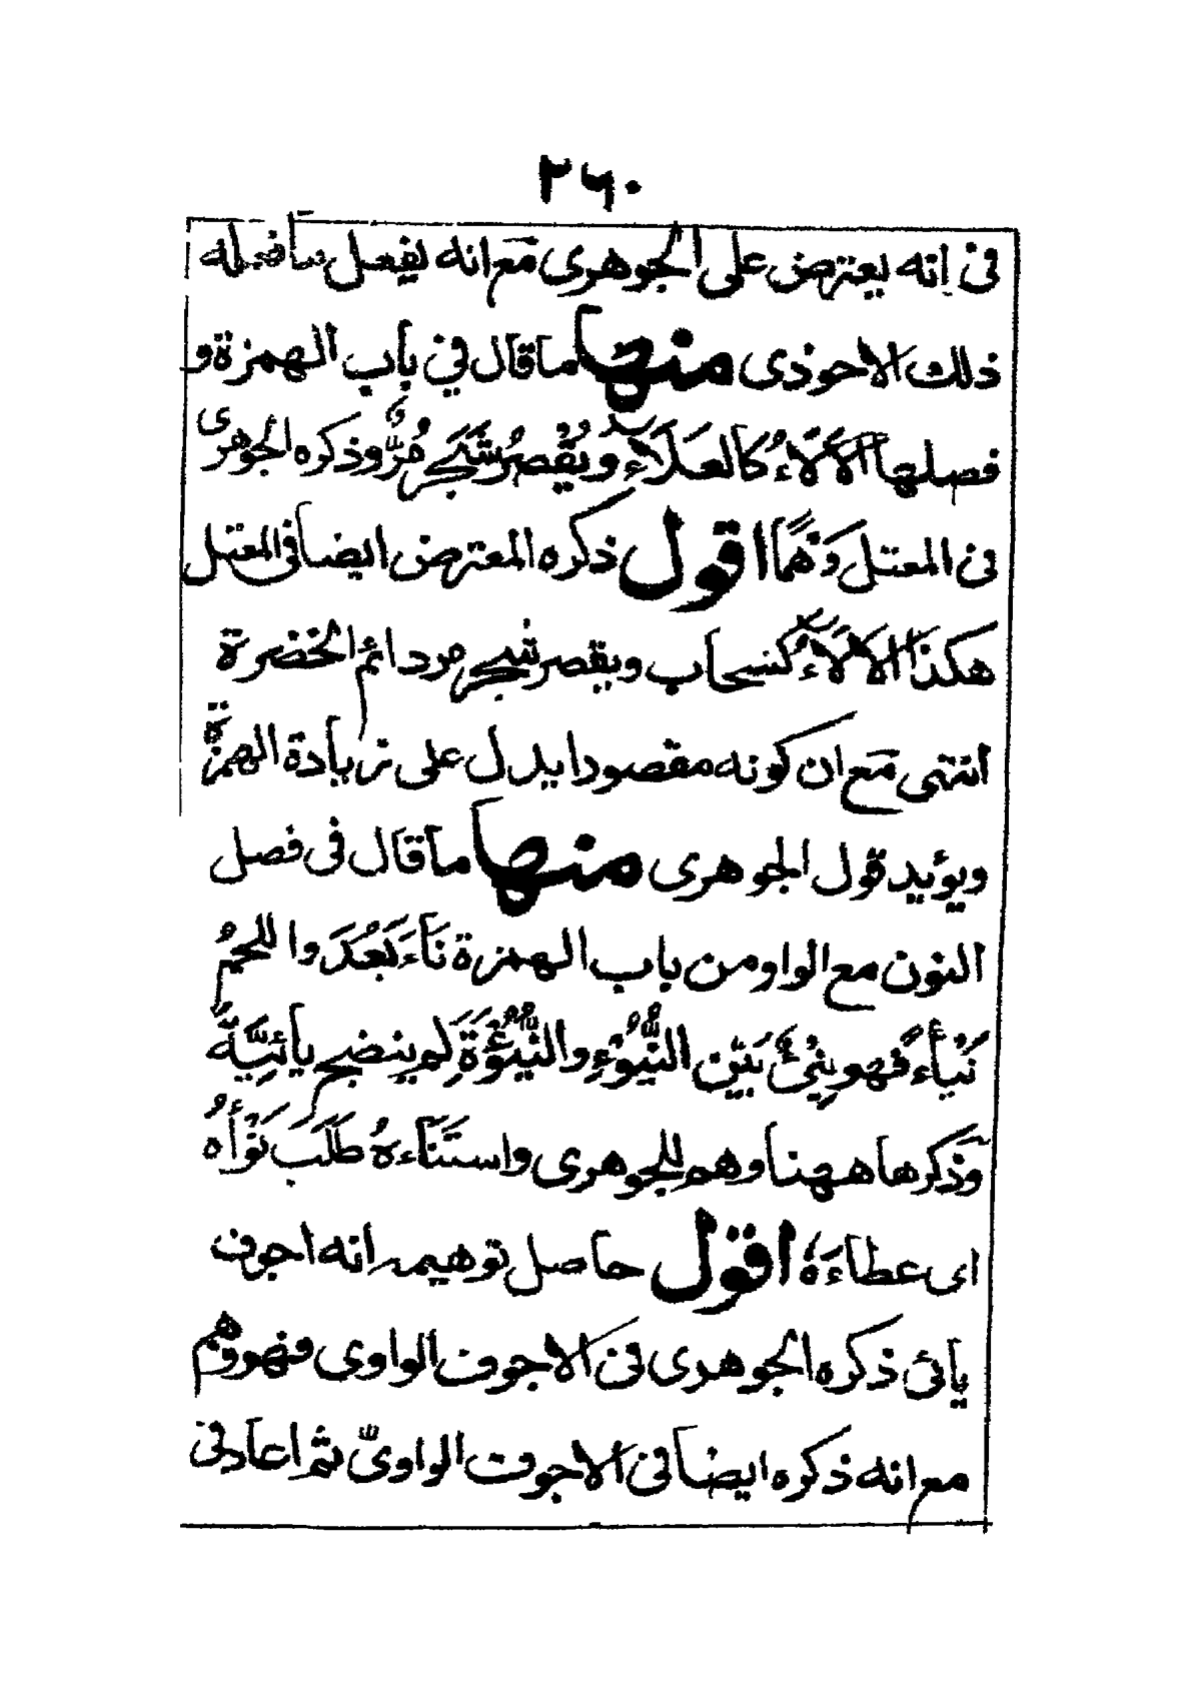 ٢٦٠
فى انه يعترض على الجوهرى مع انه يفعل ما فعله
ذلك الاحوذى منها ما قال فى باب الهمزة و
فصلها اَلْاَلَاءُ كالعَلَاءِ ويُقْصرُ شَجَرٌ مُرٌّ وذكره الجوهرى
فى المعتل وَهْمًا اقول ذكره المعترض ايضا فى المعتل
هكذا الالاءُ كسحاب ويقصر شجر مر دائم الخضرة
انتهى مع ان كونه مقصودا يدل على زيادة الهمزة
ويوئيد قول الجوهرى منها ما قال فى فصل
النون مع الواو من باب الهمزة نَاءَ بَعُدَ واللحمُ
نَيْأً فهو نِئٌ بَيِّن النُّيُوْءِ والنُّيُوْءَةِ لم ينضج يائِيَّةٌ
وذكرها ههنا وهم للجوهرى واستَنَاءَهُ طَلَبَ نَوْأَهُ
اى عطاءَهُ اقول حاصل توهيمه انه اجوف
يائى ذكره الجوهرى فى الاجوف الواوى فهو وهم
مع انه ذكره ايضا فى الاجوف الواوىّ ثم اعاد فى